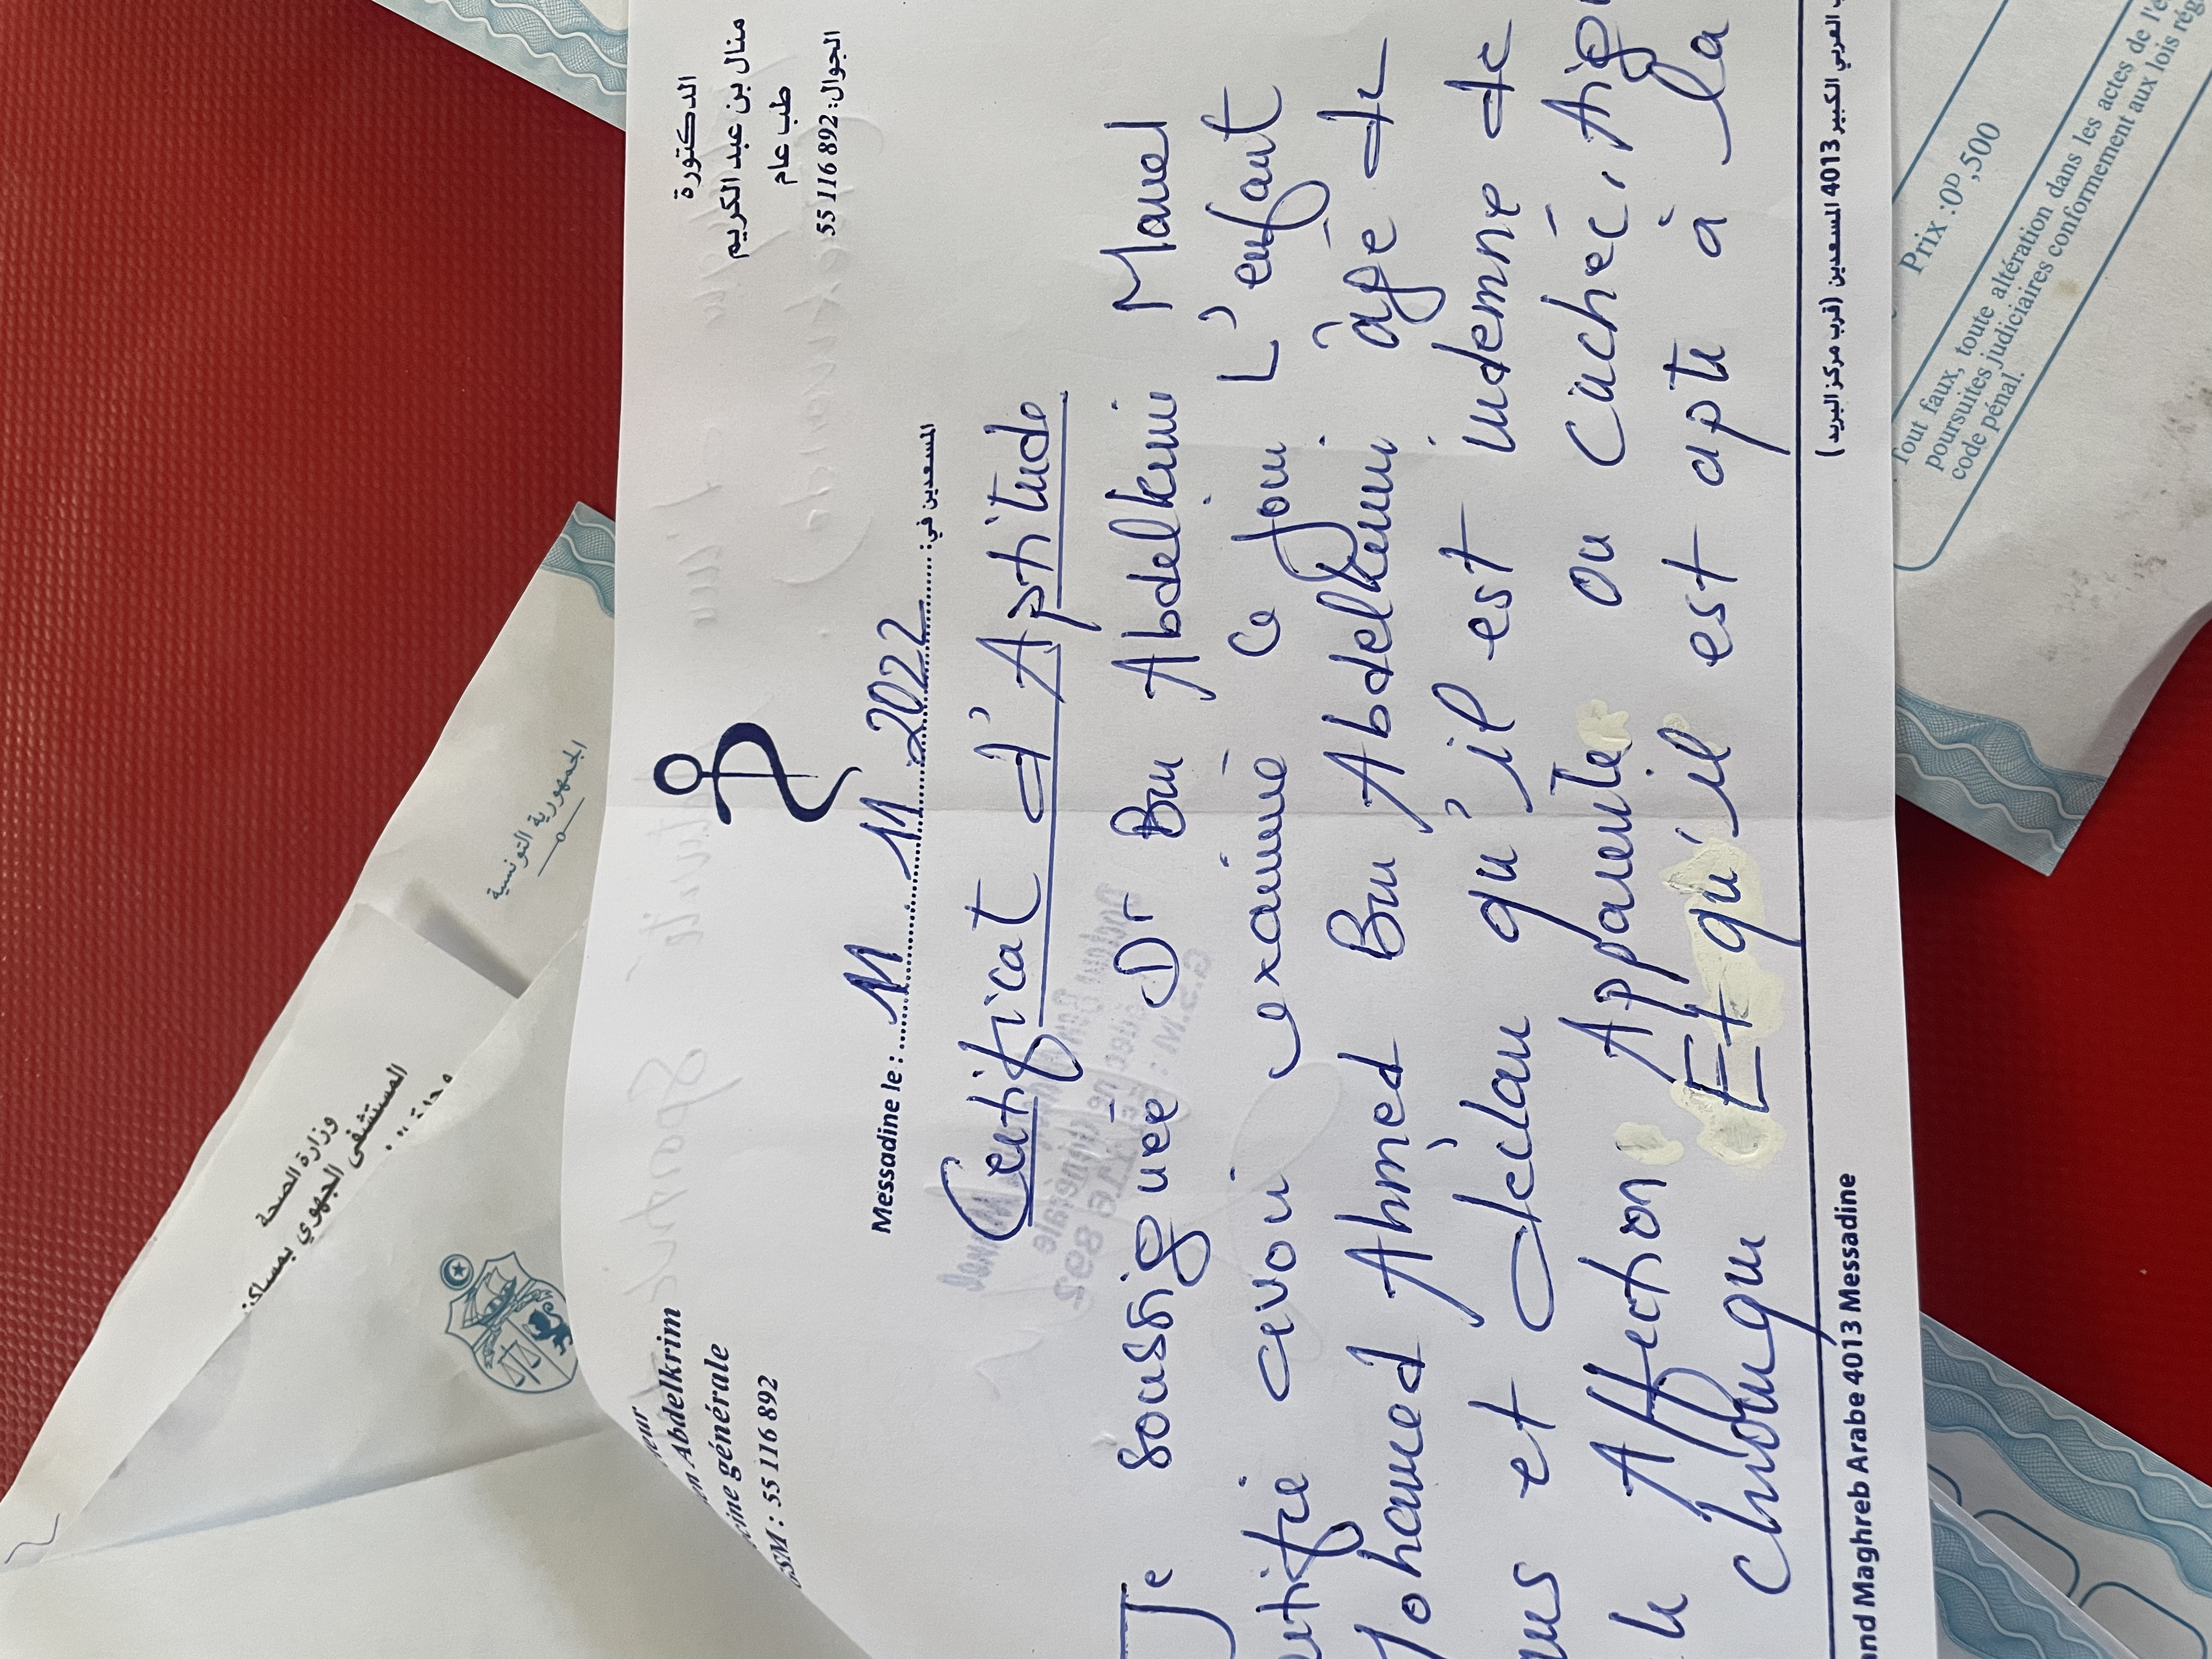 Abdelkrim
générale
GSM : 55 116 892
الدكتورة
منال بن عبد الكريم
طب عام
الجوال: 892 116 55
Messadine le : 11 11 2022 المسعدين في:
Certificat d'Aptitude
Je soussignée Dr Ben Abdelkrim Manel
avoir examiné ce jour L'enfant
Mohamed Ahmed Ben Abdelkrim âgé de
et déclare qu'il est indemne de
Affection Apparente ou cachée, Aig
chronique Et qu'il est apte à la
Maghreb Arabe 4013 Messadine
العربي الكبير 4013 المسعدين (قرب مركز البريد)
الجمهورية التونسية
وزارة الصحة
المستشفى الجهوي بمساكن
Prix : 0D,500
Tout faux, toute altération dans les actes de l'é
poursuites judiciaires conformement aux lois rég
code pénal.